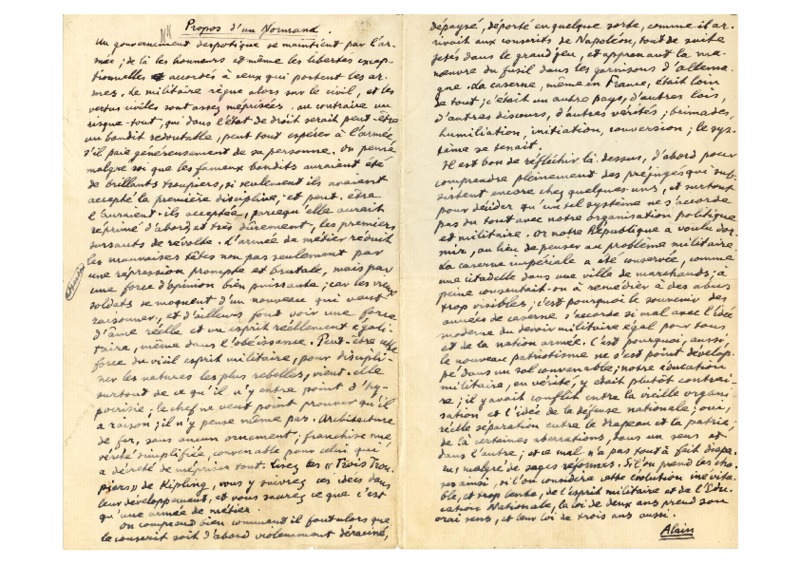 Propos d'un Normand.
Un gouvernement despotique se maintient par l'ar-
mée ; de là les honneurs et même les libertés excep-
tionnelles accordés à ceux qui portent les ar-
mes. Le militaire règne alors sur le civil, et les
vertus civiles sont assez méprisées. Au contraire un
risque-tout, qui dans l'état de droit serait peut-être
un bandit redoutable, peut tout espérer à l'armée
s'il paie généreusement de sa personne. On pense
malgré soi que les fameux bandits auraient été
de brillants troupiers, si seulement ils avaient
accepté la première discipline ; et peut-être
l'auraient-ils acceptée, parce qu'elle aurait
réprimé d'abord et très durement, les premiers
sursauts de révolte. L'armée de métier réduit
les mauvaises têtes non pas seulement par
une répression prompte et brutale, mais par
une force d'opinion bien puissante ; car les vieux
soldats se moquent d'un nouveau qui veut
raisonner, et d'ailleurs font voir une force
d'âme réelle et un esprit réellement égali-
taire, même dans l'obéissance. Peut-être cette
force du vieil esprit militaire, pour discipli-
ner les natures les plus rebelles, vient-elle
surtout de ce qu'il n'y entre point d'hy-
pocrisie ; le chef ne veut point prouver qu'il
a raison ; il n'y pense même pas. Architecture
de fer, sans aucun ornement ; franchise nue,
vérité simplifiée, convenable pour celui qui
a décrété de mépriser tout. Lisez les « Trois Trou-
piers » de Kipling, vous y suivrez ces idées dans
leur développement, et vous saurez ce que c'est
qu'une armée de métier.
On comprend bien comment il faut alors que
le conscrit soit d'abord violemment déraciné,
dépaysé, déporté en quelque sorte, comme il ar-
rivait aux conscrits de Napoléon, tout de suite
jetés dans le grand jeu, et apprenant la ma-
nœuvre du fusil dans les garnisons d'Allema-
gne. La caserne, même en France, était loin
de tout ; c'était un autre pays, d'autres lois,
d'autres discours, d'autres vérités ; brimades,
humiliation, initiation, conversion ; le sys-
tème se tenait.
Il est bon de réfléchir là-dessus, d'abord pour
comprendre pleinement des préjugés qui sub-
sistent encore chez quelques uns, et surtout
pour décider qu'un tel système ne s'accorde
pas du tout avec notre organisation politique
et militaire. Or notre République a voulu dor-
mir, au lieu de penser au problème militaire.
La caserne impériale a été conservée, comme
une citadelle dans une ville de marchands ; à
peine consentait-on à remédier à des abus
trop visibles ; c'est pourquoi le souvenir des
années de caserne s'accorde si mal avec l'idée
moderne du devoir militaire égal pour tous
et de la nation armée. C'est pourquoi, aussi,
le nouveau patriotisme ne s'est point dévelop-
pé dans un sol convenable ; notre éducation
militaire, en vérité, y était plutôt contrai-
re ; il y avait conflit entre la vieille organi-
sation et l'idée de la défense nationale ; oui,
réelle séparation entre le drapeau et la patrie ;
de là certaines aberrations, dans un sens et
dans l'autre ; et ce mal n'a pas tout à fait dispa-
ru, malgré de sages réformes. Si l'on prend les cho-
ses ainsi, si l'on considère cette évolution inévita-
ble, et trop lente, de l'esprit militaire et de l'Edu-
cation Nationale, la loi de deux ans prend son
vrai sens, et leur loi de trois ans aussi.
Alain